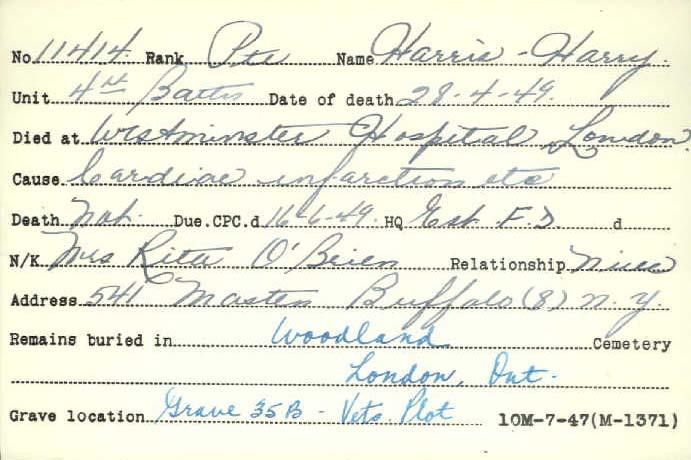 No 11414 Rank Pte Name Harris - Harry.
Unit 4th Battn Date of death 28-4-49.
Died at Westminster Hospital London.
Cause Cardiac infarction etc
Death Not. Due.CPC.d 16-6-49. HQ Est. F.D. d
N/K Mrs Rita O'Brien Relationship Niece
Address 541 Masten Buffalo (8) N.Y.
Remains buried in Woodland Cemetery
London, Ont.
Grave location Grave 35B - Vets Plot 10M-7-47(M-1371)